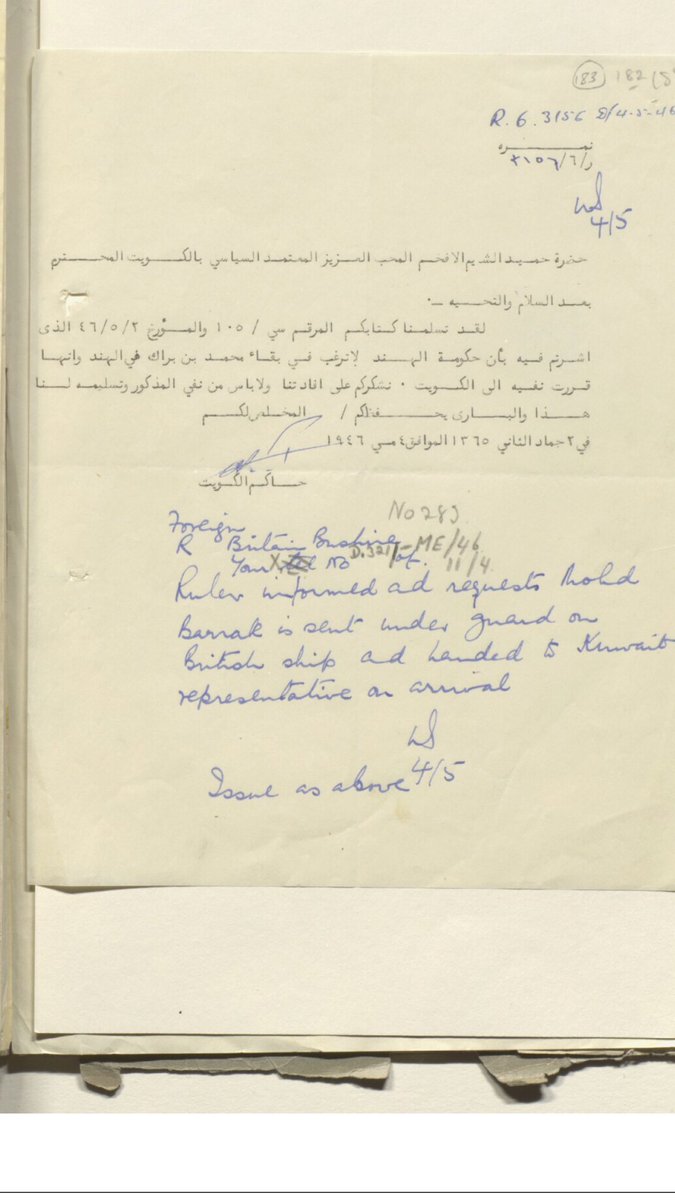 183 182
R. 6. 3156 D/4-5-46
نمـــــــره
ر/٦/٢١٥٦
4/5
حضرة حميد الشيم الافخم المحب العزيز المعتمد السياسي بالكويت المحترم
بعد السلام والتحيه ــ٠
لقد تسلمنا كتابكم المرقم سي / ١٠٥ والمؤرخ ٤٦/٥/٢ الذى
اشرتم فيه بأن حكومة الهند لاترغب في بقاء محمد بن براك في الهند وانها
قررت نفيه الى الكويت ٠ نشكركم على افادتنا ولاباس من نفي المذكور وتسليمه لنا
هذا والبارى يحفظكم / المخلص لكم
في ٢ جماد الثاني ١٣٦٥ الموافق ٤ مي ١٩٤٦
حاكم الكويت
No 283
Foreign
R Britain Bushire
Your No D.321-ME/46 of 11/4
Ruler informed ad requests Mohd
Barrak is sent under guard on
British ship ad handed to Kuwait
representative on arrival
4/5
Issue as above